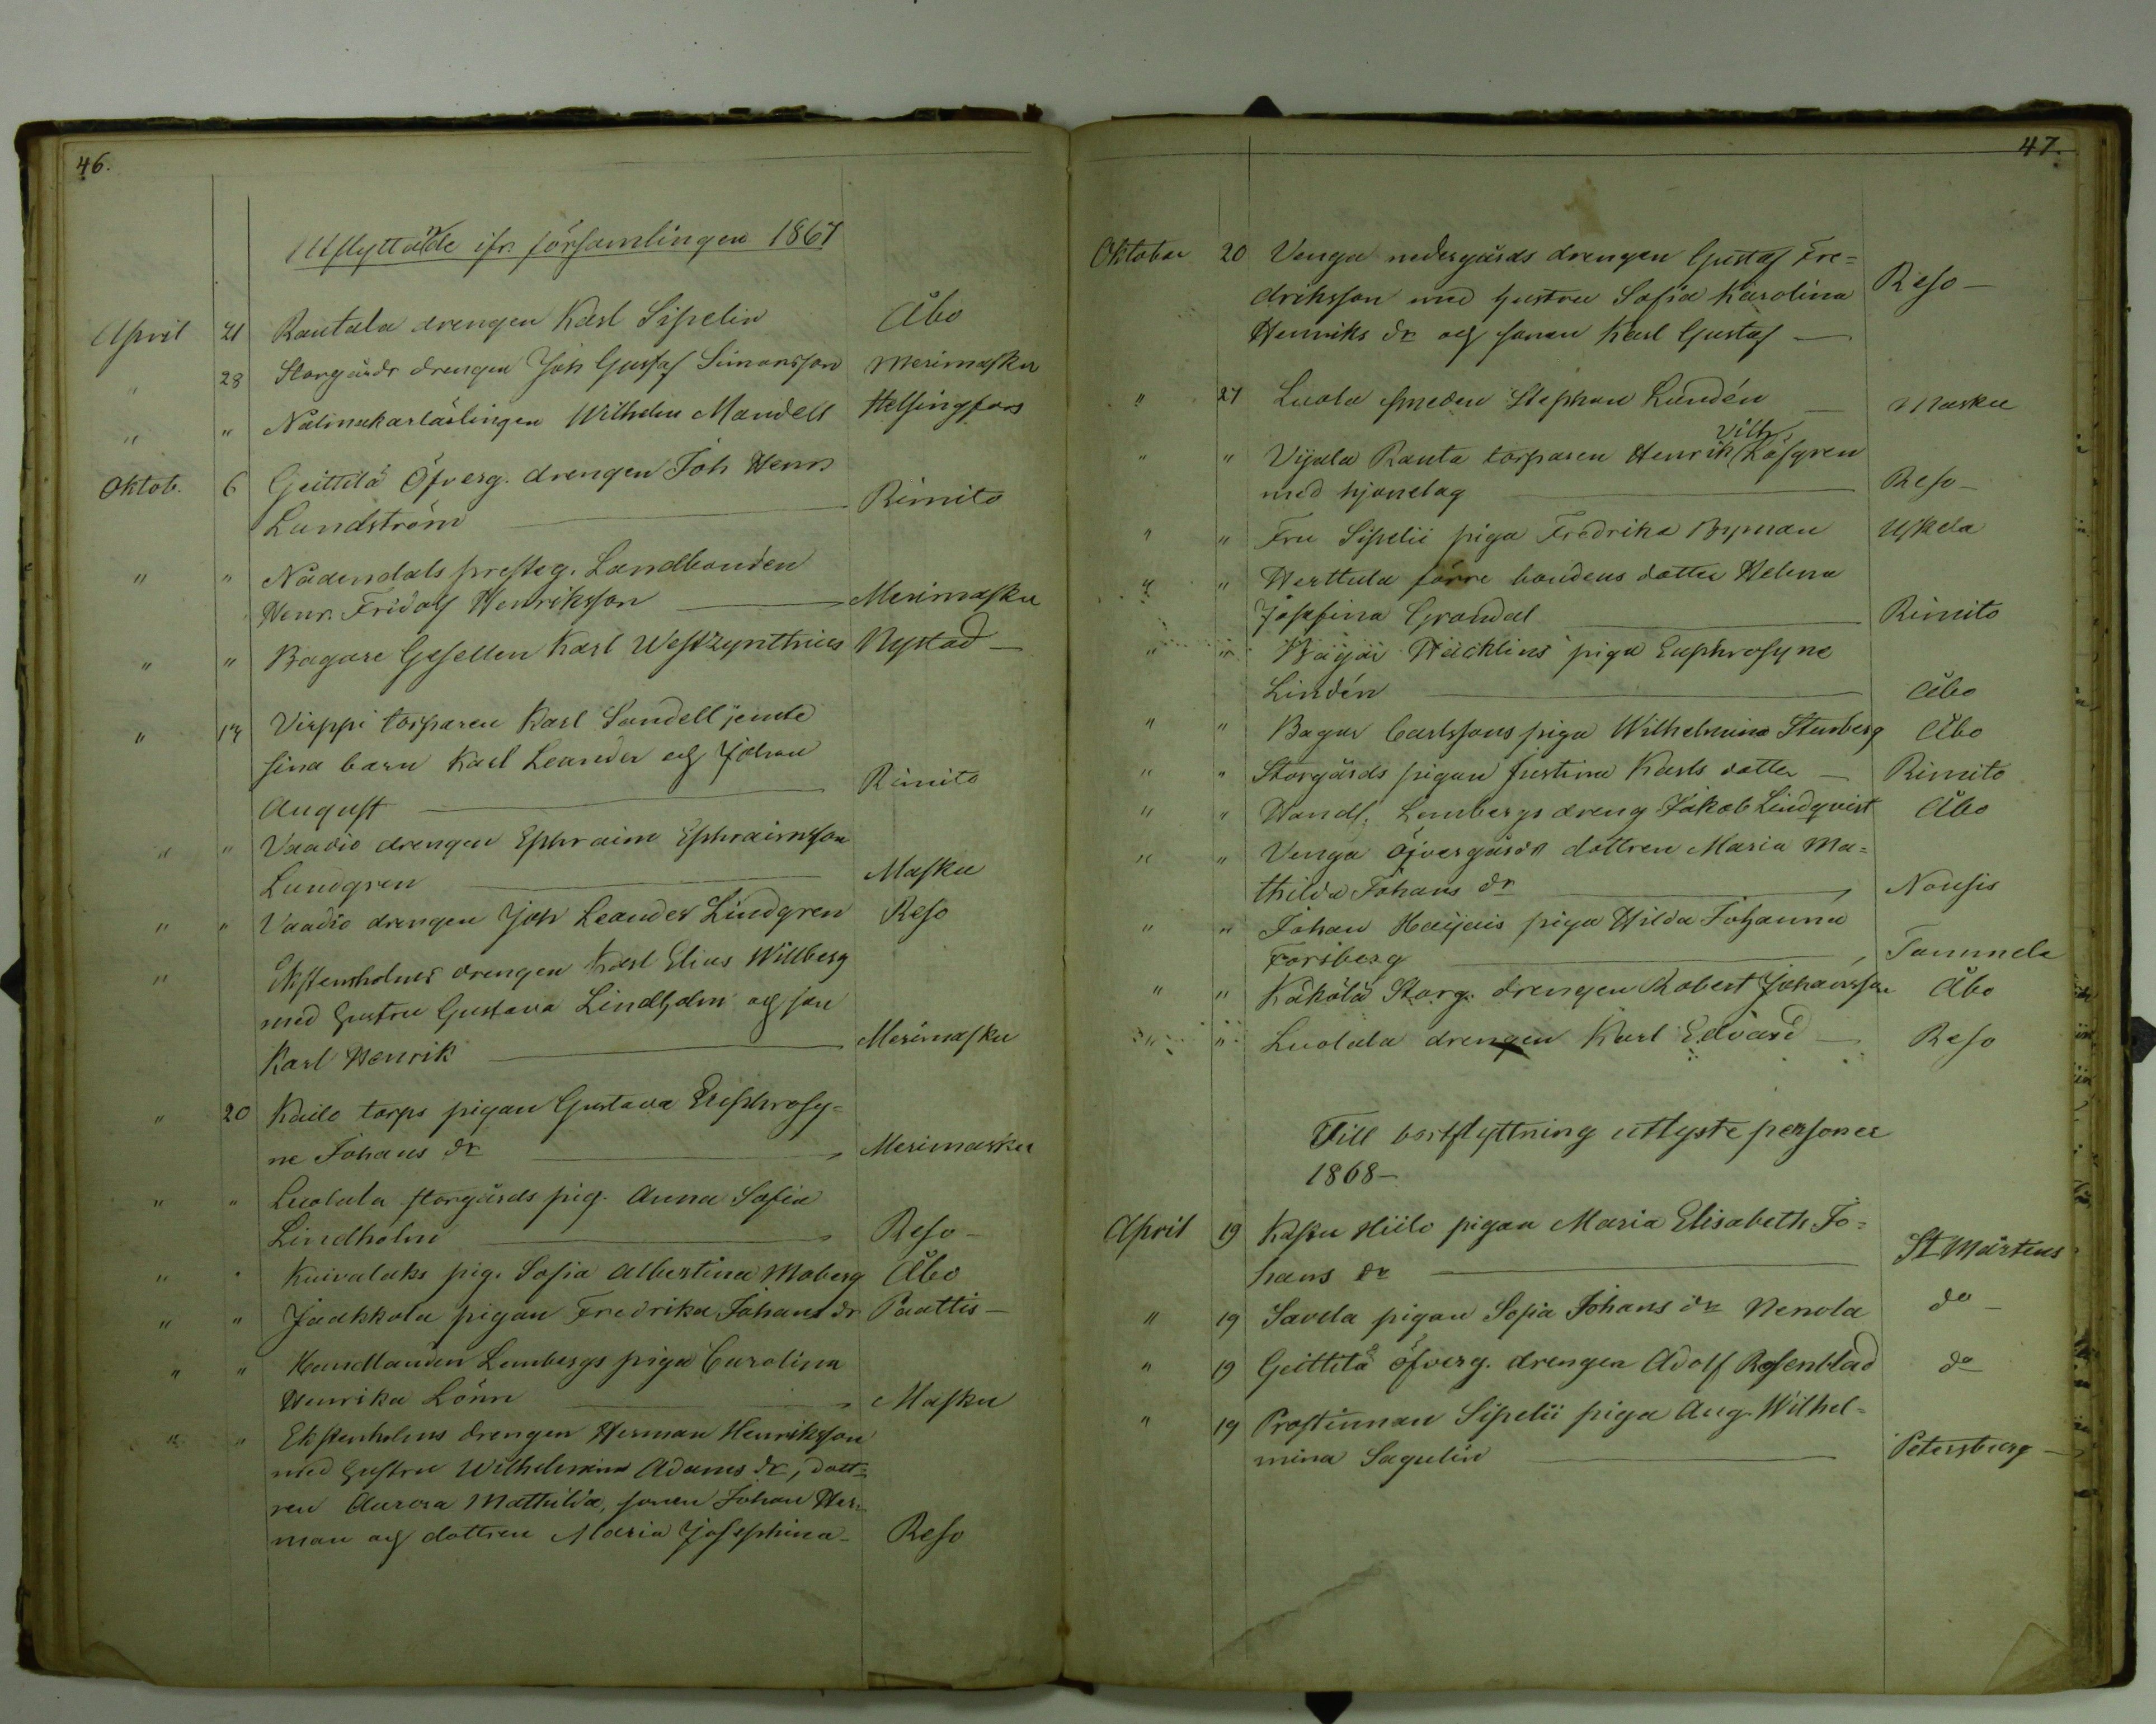 46.
Utflyttade ifr. församlingen 1867
April 21 Rantala drengen Karl Sipelin Åbo
" 28 Storgårds drengen Joh Gustaf Simonsson Merimasku
" " Wilhelm Mandell Helsingfors
Oktob. 6 Geittilä Öfverg. drengen Joh Henr
Lundström Rimito
" " Nådendals presteg. Landbonden
Henr. Fridolf Henriksson Merimasku
" " Bagare Gesellen Karl Westzynthius Nystad
" 14 Virppi torparen Karl Sandell jemte
sina barn Karl Leander och Johan
August Rimito
" " Vaadio drengen Ephraim Ephraimsson
Lundgren Masku
" " Vaadio drengen Joh Leander Lindgren Reso
" Ekstenholms drengen Karl Elias Willberg
med hustru Gustava Lindholm och son
Karl Henrik Merimasku
" 20 Kailo torps pigan Gustava Euphrosy=
ne Johans dr Merimasku
" " Luolala storgårds pig. Anna Sofia
Lindholm Reso
" " Kuivalaks pig. Sofia Albertina Moberg Åbo
" " Jaakkola pigan Fredrika Johans dr Paattis
" " Handlanden Lembergs piga Carolina
Henrika Lönn Masku
" " Ekstenholms drengen Herman Henriksson
med hustru Wilhelmina Adams dr, dott=
ren Aurora Mathilda, sonen Johan Her=
man och dottren Maria Josephina Reso
47.
Oktober 20 Venga nedergårds drengen Gustaf Fre=
driksson med hustru Sofia Karolina Reso
Henriks dr och sonen Karl Gustaf
" 27 Luola smeden Stephan Lundén Masku
Vilh
" " Vijala Ranta torparen Henrik Löfgren
med hjonelag Reso
" " Fru Sipelii piga Fredrika Byman Uskela
" " Herttula förre bondens dotter Helena
Josefina Grondal Rimito
" " Häcklins piga Euphrosyne
Lindén Åbo
" " Bagar Carlssons piga Wilhelmina Stenberg Åbo
" " Storgårds pigan Justina Karls dotter Rimito
" " Handl. Lembergs dreng Jakob Lindqvist Åbo
" " Venga Öfvergårds dottren Maria Ma=
thilda Johans dr Nousis
" " Johan Haijais piga Hilda Johanna
Forsberg Tammela
" " Käkölä Storg. drengen Robert Johansson Åbo
" " Luolala drengen Karl Edvard Reso
Till bortflyttning utlyste personer
1868
April 19 Kasku Hiilo pigan Maria Elisabeth Jo=
hans dr St Mårtens
" 19 Savela pigan Sofia Johans dr Nenola do
" 19 Geittilä öfverg. drengen Adolf Rosenblad do
" 19 Prostinnan Sipelii piga Aug. Wilhel=
mina Sagulin Petersburg